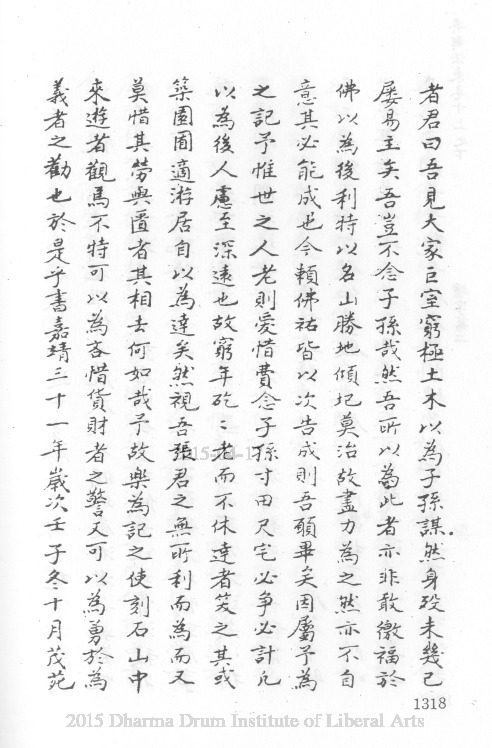 者君曰吾見大家巨室窮極土木以為子孫謀然身歿未幾已
屡易主矣吾豈不念子孫哉然吾所以為此者亦非敢徼福於
佛以為後利特以名山勝地傾圮莫治故盡力為之然亦不自
意其必能成也今賴佛祐皆以次告成則吾願畢矣因屬予為
之記予惟世之人老則愛惜費念子孫寸田尺宅必争必計凡
以為後人慮至深遠也故窮年矻〻老而不休達者笑之其或
築園囿適游居自以為達矣然視吾張君之無所利而為而又
莫惜其勞與匱者其相去何如哉予故樂為記之使刻石山中
來遊者觀焉不特可以為吝惜貨財者之警又可以為勇於為
義者之勸也於是乎書嘉靖三十一年歲次壬子冬十月茂苑
1318
2015 Dharma Drum Institute of Liberal Arts